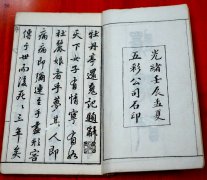 光緒壬辰孟夏
五彩公司石印
牡丹亭還魂記題辭
天下女子有情寧有如
杜麗娘者乎夢其人即
病病即彌連至手畫形容
傳於世而後死死三年矣